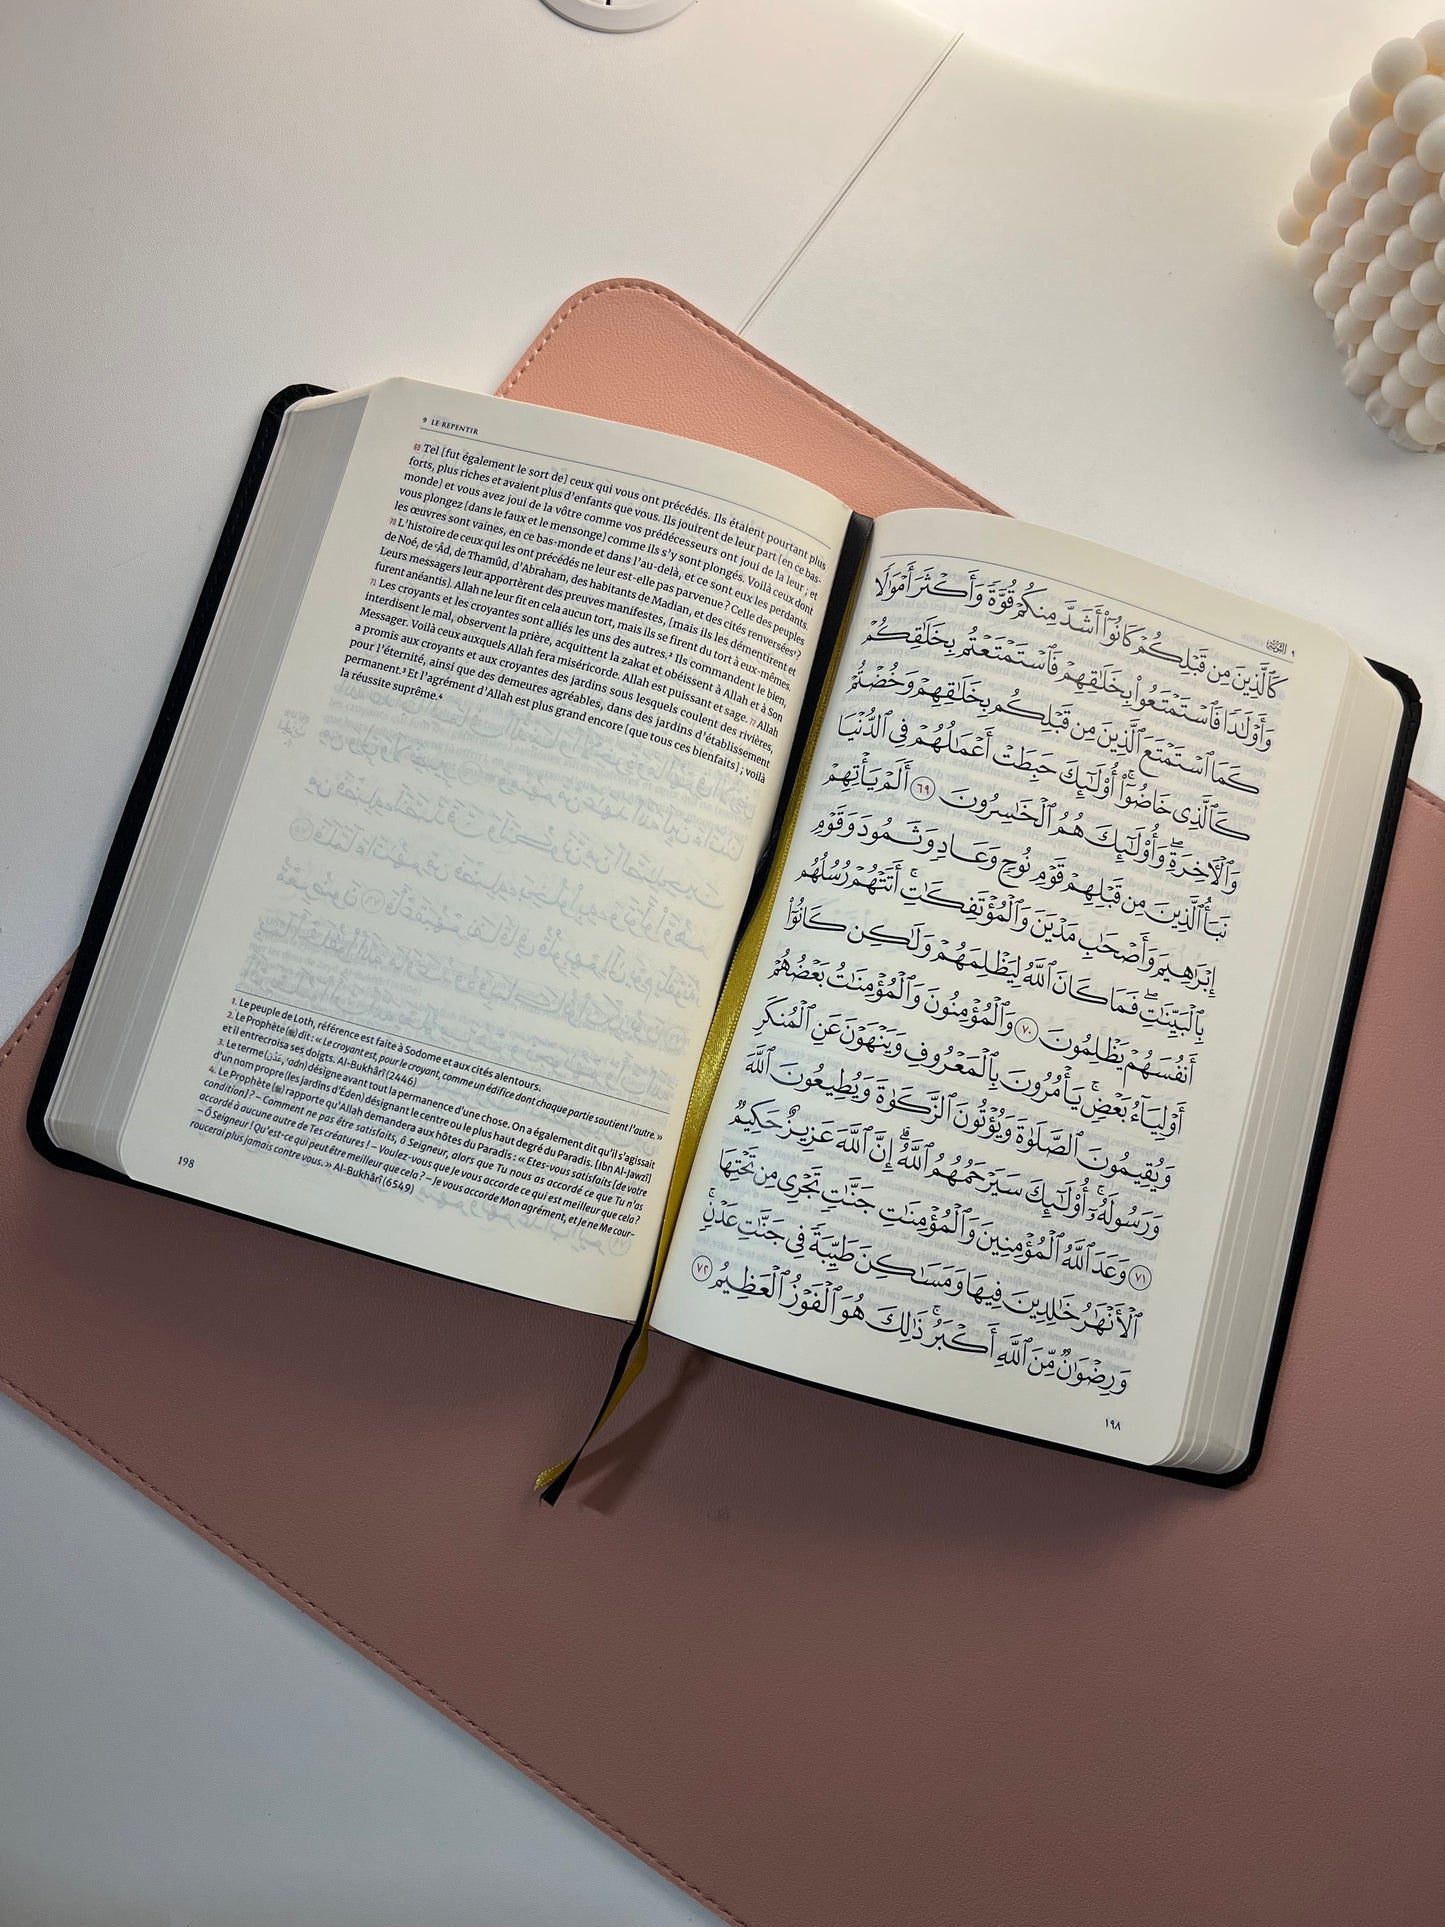 9 LE REPENTIR
69 Tel [fut également le sort de] ceux qui vous ont précédés. Ils étaient pourtant plus
forts, plus riches et avaient plus d'enfants que vous. Ils jouirent de leur part [en ce bas-
monde] et vous avez joui de la vôtre comme vos prédécesseurs ont joui de la leur ; et
vous plongez [dans le faux et le mensonge] comme ils s'y sont plongés. Voilà ceux dont
les œuvres sont vaines, en ce bas-monde et dans l'au-delà, et ce sont eux les perdants.
70 L'histoire de ceux qui les ont précédés ne leur est-elle pas parvenue ? Celle des peuples
de Noé, de ʿÂd, de Thamûd, d'Abraham, des habitants de Madian, et des cités renversées¹ ?
Leurs messagers leur apportèrent des preuves manifestes, [mais ils les démentirent et
furent anéantis]. Allah ne leur fit en cela aucun tort, mais ils se firent du tort à eux-mêmes.
71 Les croyants et les croyantes sont alliés les uns des autres.² Ils commandent le bien,
interdisent le mal, observent la prière, acquittent la zakat et obéissent à Allah et à Son
Messager. Voilà ceux auxquels Allah fera miséricorde. Allah est puissant et sage. 72 Allah
a promis aux croyants et aux croyantes des jardins sous lesquels coulent des rivières,
pour l'éternité, ainsi que des demeures agréables, dans des jardins d'établissement
permanent.³ Et l'agrément d'Allah est plus grand encore [que tous ces bienfaits] ; voilà
la réussite suprême.⁴
1. Le peuple de Loth, référence est faite à Sodome et aux cités alentours.
2. Le Prophète (ﷺ) dit : « Le croyant est, pour le croyant, comme un édifice dont chaque partie soutient l'autre. »
et il entrecroisa ses doigts. Al-Bukhârî (2446)
3. Le terme (عَدْن, ʿadn) désigne avant tout la permanence d'une chose. On a également dit qu'il s'agissait
d'un nom propre (les jardins d'Éden) désignant le centre ou le plus haut degré du Paradis. [Ibn Al-Jawzî]
4. Le Prophète (ﷺ) rapporte qu'Allah demandera aux hôtes du Paradis : « Etes-vous satisfaits [de votre
condition] ? – Comment ne pas être satisfaits, ô Seigneur, alors que Tu nous as accordé ce que Tu n'as
accordé à aucune autre de Tes créatures ! – Voulez-vous que Je vous accorde ce qui est meilleur que cela ?
– Ô Seigneur ! Qu'est-ce qui peut être meilleur que cela ? – Je vous accorde Mon agrément, et Je ne Me cour-
roucerai plus jamais contre vous. » Al-Bukhârî (6549)
198
٩ التوبة
كَٱلَّذِينَ مِن قَبْلِكُمْ كَانُوٓا۟ أَشَدَّ مِنكُمْ قُوَّةً وَأَكْثَرَ أَمْوَٰلًا
وَأَوْلَٰدًا فَٱسْتَمْتَعُوا۟ بِخَلَٰقِهِمْ فَٱسْتَمْتَعْتُم بِخَلَٰقِكُمْ
كَمَا ٱسْتَمْتَعَ ٱلَّذِينَ مِن قَبْلِكُم بِخَلَٰقِهِمْ وَخُضْتُمْ
كَٱلَّذِى خَاضُوٓا۟ ۚ أُو۟لَٰٓئِكَ حَبِطَتْ أَعْمَٰلُهُمْ فِى ٱلدُّنْيَا
وَٱلْءَاخِرَةِ ۖ وَأُو۟لَٰٓئِكَ هُمُ ٱلْخَٰسِرُونَ ٦٩ أَلَمْ يَأْتِهِمْ
نَبَأُ ٱلَّذِينَ مِن قَبْلِهِمْ قَوْمِ نُوحٍ وَعَادٍ وَثَمُودَ وَقَوْمِ
إِبْرَٰهِيمَ وَأَصْحَٰبِ مَدْيَنَ وَٱلْمُؤْتَفِكَٰتِ ۚ أَتَتْهُمْ رُسُلُهُم
بِٱلْبَيِّنَٰتِ ۖ فَمَا كَانَ ٱللَّهُ لِيَظْلِمَهُمْ وَلَٰكِن كَانُوٓا۟
أَنفُسَهُمْ يَظْلِمُونَ ٧٠ وَٱلْمُؤْمِنُونَ وَٱلْمُؤْمِنَٰتُ بَعْضُهُمْ
أَوْلِيَآءُ بَعْضٍ ۚ يَأْمُرُونَ بِٱلْمَعْرُوفِ وَيَنْهَوْنَ عَنِ ٱلْمُنكَرِ
وَيُقِيمُونَ ٱلصَّلَوٰةَ وَيُؤْتُونَ ٱلزَّكَوٰةَ وَيُطِيعُونَ ٱللَّهَ
وَرَسُولَهُۥٓ ۚ أُو۟لَٰٓئِكَ سَيَرْحَمُهُمُ ٱللَّهُ ۗ إِنَّ ٱللَّهَ عَزِيزٌ حَكِيمٌ
٧١ وَعَدَ ٱللَّهُ ٱلْمُؤْمِنِينَ وَٱلْمُؤْمِنَٰتِ جَنَّٰتٍ تَجْرِى مِن تَحْتِهَا
ٱلْأَنْهَٰرُ خَٰلِدِينَ فِيهَا وَمَسَٰكِنَ طَيِّبَةً فِى جَنَّٰتِ عَدْنٍ ۚ
وَرِضْوَٰنٌ مِّنَ ٱللَّهِ أَكْبَرُ ۚ ذَٰلِكَ هُوَ ٱلْفَوْزُ ٱلْعَظِيمُ ٧٢
١٩٨